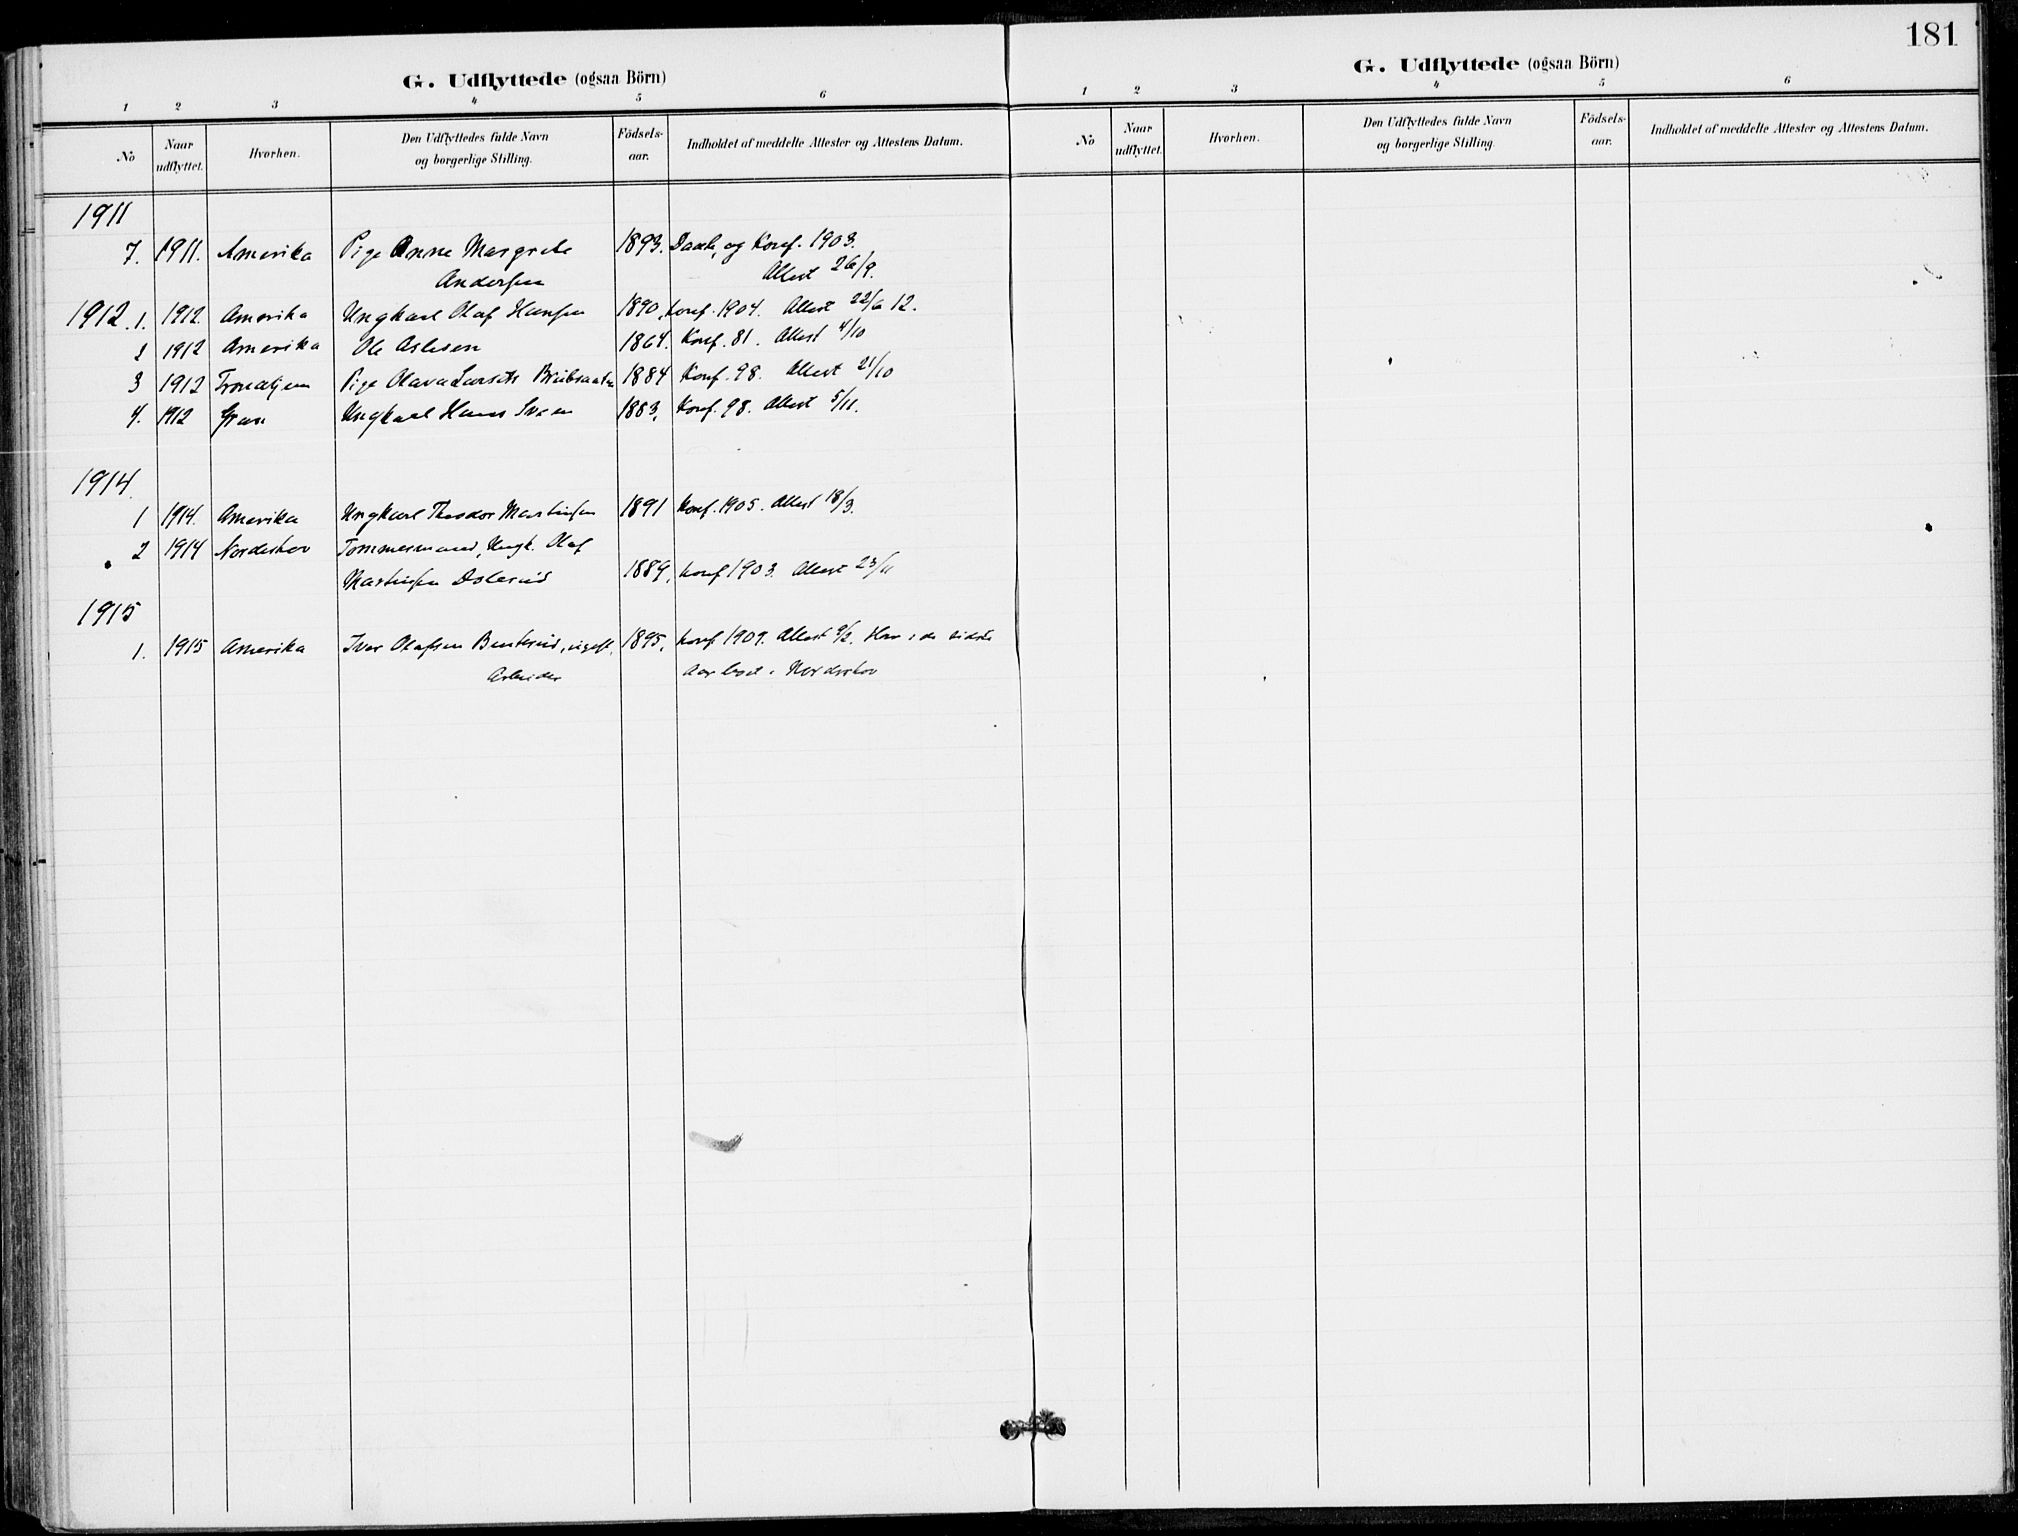 181
G. Udflyttede (ogsaa Börn)
1 2 3 4 5 6
No Naar udflyttet. Hvorhen. Den Udflyttedes fulde Navn og borgerlige Stilling. Födsels-aar. Indholdet af meddelte Attester og Attestens Datum.
1911
7. 1911. Amerika Pige Anne Margrete 1893. Daab, og Konf. 1903.
Andersen Attest 26/9.
1912. 1. 1912. Amerika Ungkarl Olaf Hansen 1890, Konf. 1904. Attest 22/6 12.
2 1912 Amerika Ole Aslesen 1864. Konf. 81. Attest 4/10
3 1912 Trondhjem Pige Olava Larsdt. 1884 Konf. 98. Attest 21/10
4. 1912 Gran Ungkarl Hans Sveen 1883, Konf. 98. Attest 5/11.
1914.
1 1914. Amerika Ungkarl Theodor Martinsen 1891 Konf. 1905. Attest 18/3.
2 1914 Norderhov Tømmermand, Ungk. Olaf
Martinsen 1889, Konf 1903. Attest 23/11
1915
1. 1915 Amerika Iver Olafsen ugift, 1895, Konf 1909. Attest 9/2. Har i de sidste
Arbeider Aar boet i Norderhov
G. Udflyttede (ogsaa Börn)
1 2 3 4 5 6
No Naar udflyttet. Hvorhen. Den Udflyttedes fulde Navn og borgerlige Stilling. Födsels-aar. Indholdet af meddelte Attester og Attestens Datum.